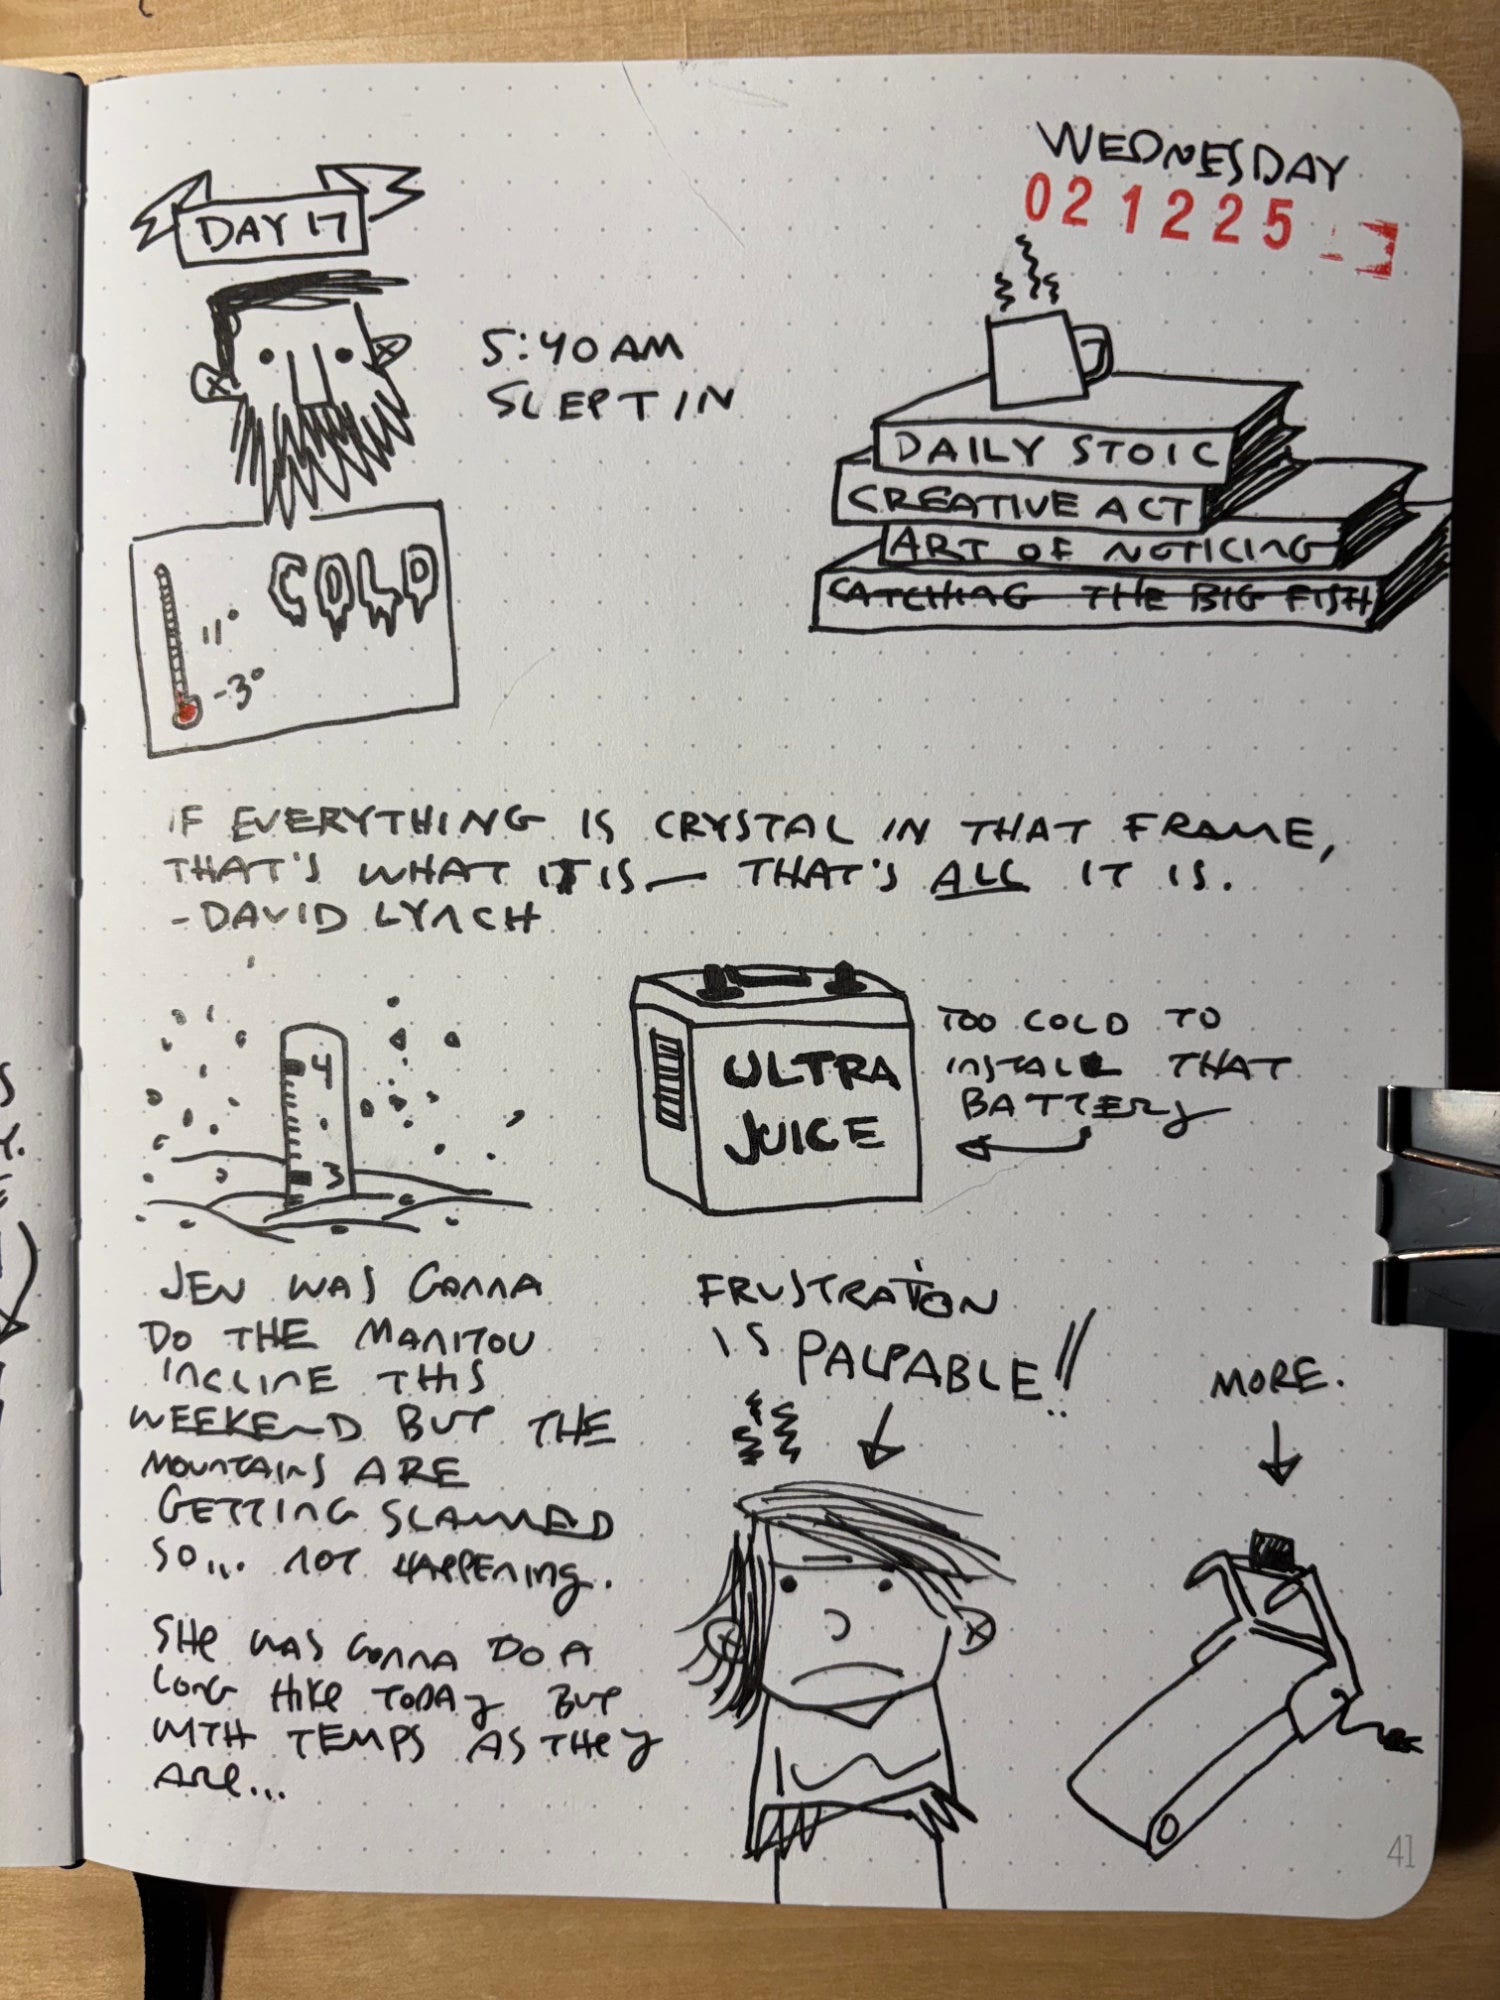 WEDNESDAY
021225
DAY 17
5:40AM
SLEPT IN
DAILY STOIC
CREATIVE ACT
ART OF NOTICING
CATCHING THE BIG FISH
COLD
11°
-3°
IF EVERYTHING IS CRYSTAL IN THAT FRAME,
THAT'S WHAT IT IS — THAT'S ALL IT IS.
- DAVID LYNCH
4
3
ULTRA
JUICE
TOO COLD TO
INSTALL THAT
BATTERY
JEN WAS GONNA
DO THE MANITOU
INCLINE THIS
WEEKEND BUT THE
MOUNTAINS ARE
GETTING SLAMMED
SO... NOT HAPPENING.
SHE WAS GONNA DO A
LONG HIKE TODAY BUT
WITH TEMPS AS THEY
ARE...
FRUSTRATION
IS PALPABLE!!
MORE.
41